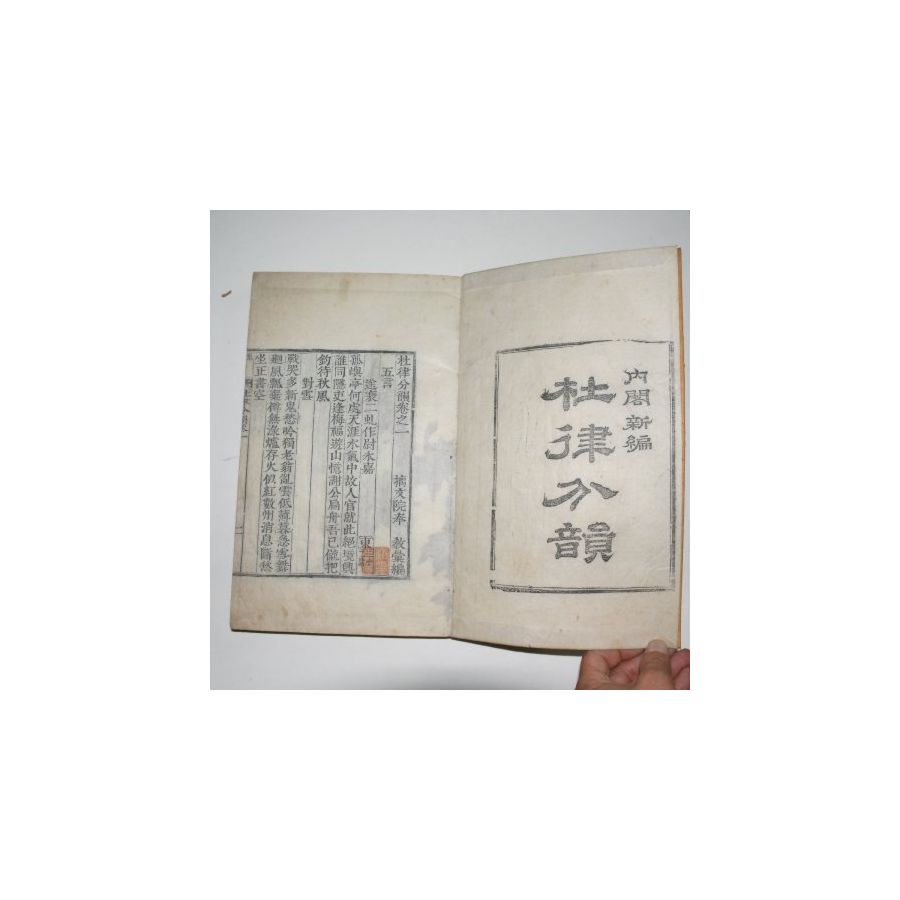 內閣新編
杜律分韻
杜律分韻卷之一 摛文院奉 敎彙編
五言
東
送裴二虬作尉永嘉
孤嶼亭何處天涯水氣中故人官就此絕境興
誰同隱吏逢梅福遊山憶謝公扁舟吾已僦把
釣待秋風
對雪
戰哭多新鬼愁吟獨老翁亂雲低薄暮急雪舞
廻風瓢棄樽無淥爐存火似紅數州消息斷愁
坐正書空